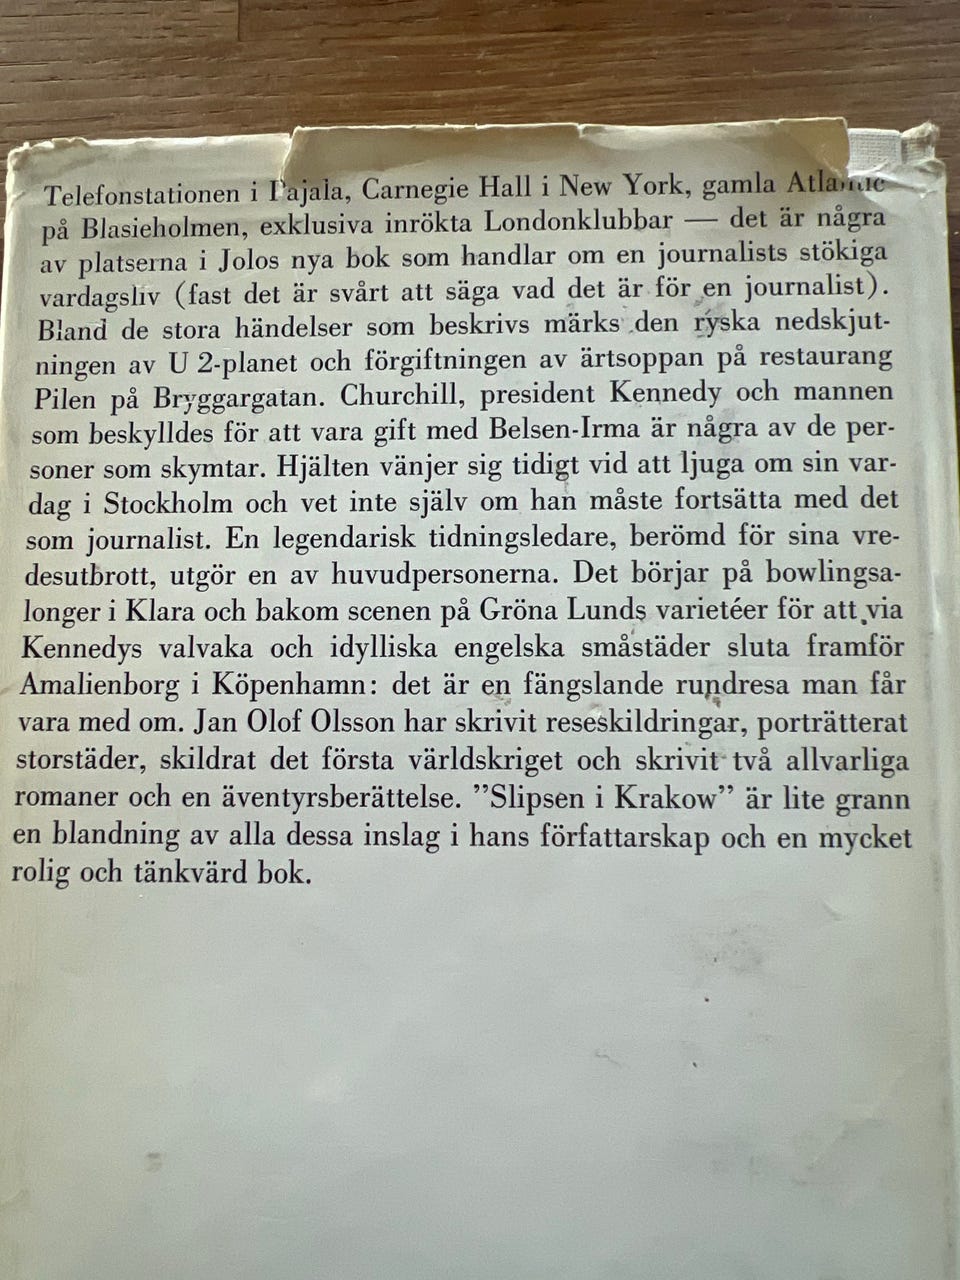 Telefonstationen i Pajala, Carnegie Hall i New York, gamla Atlantic
på Blasieholmen, exklusiva inrökta Londonklubbar — det är några
av platserna i Jolos nya bok som handlar om en journalists stökiga
vardagsliv (fast det är svårt att säga vad det är för en journalist).
Bland de stora händelser som beskrivs märks den ryska nedskjut-
ningen av U 2-planet och förgiftningen av ärtsoppan på restaurang
Pilen på Bryggargatan. Churchill, president Kennedy och mannen
som beskylldes för att vara gift med Belsen-Irma är några av de per-
soner som skymtar. Hjälten vänjer sig tidigt vid att ljuga om sin var-
dag i Stockholm och vet inte själv om han måste fortsätta med det
som journalist. En legendarisk tidningsledare, berömd för sina vre-
desutbrott, utgör en av huvudpersonerna. Det börjar på bowlingsa-
longer i Klara och bakom scenen på Gröna Lunds varietéer för att via
Kennedys valvaka och idylliska engelska småstäder sluta framför
Amalienborg i Köpenhamn: det är en fängslande rundresa man får
vara med om. Jan Olof Olsson har skrivit reseskildringar, porträtterat
storstäder, skildrat det första världskriget och skrivit två allvarliga
romaner och en äventyrsberättelse. ”Slipsen i Krakow” är lite grann
en blandning av alla dessa inslag i hans författarskap och en mycket
rolig och tänkvärd bok.